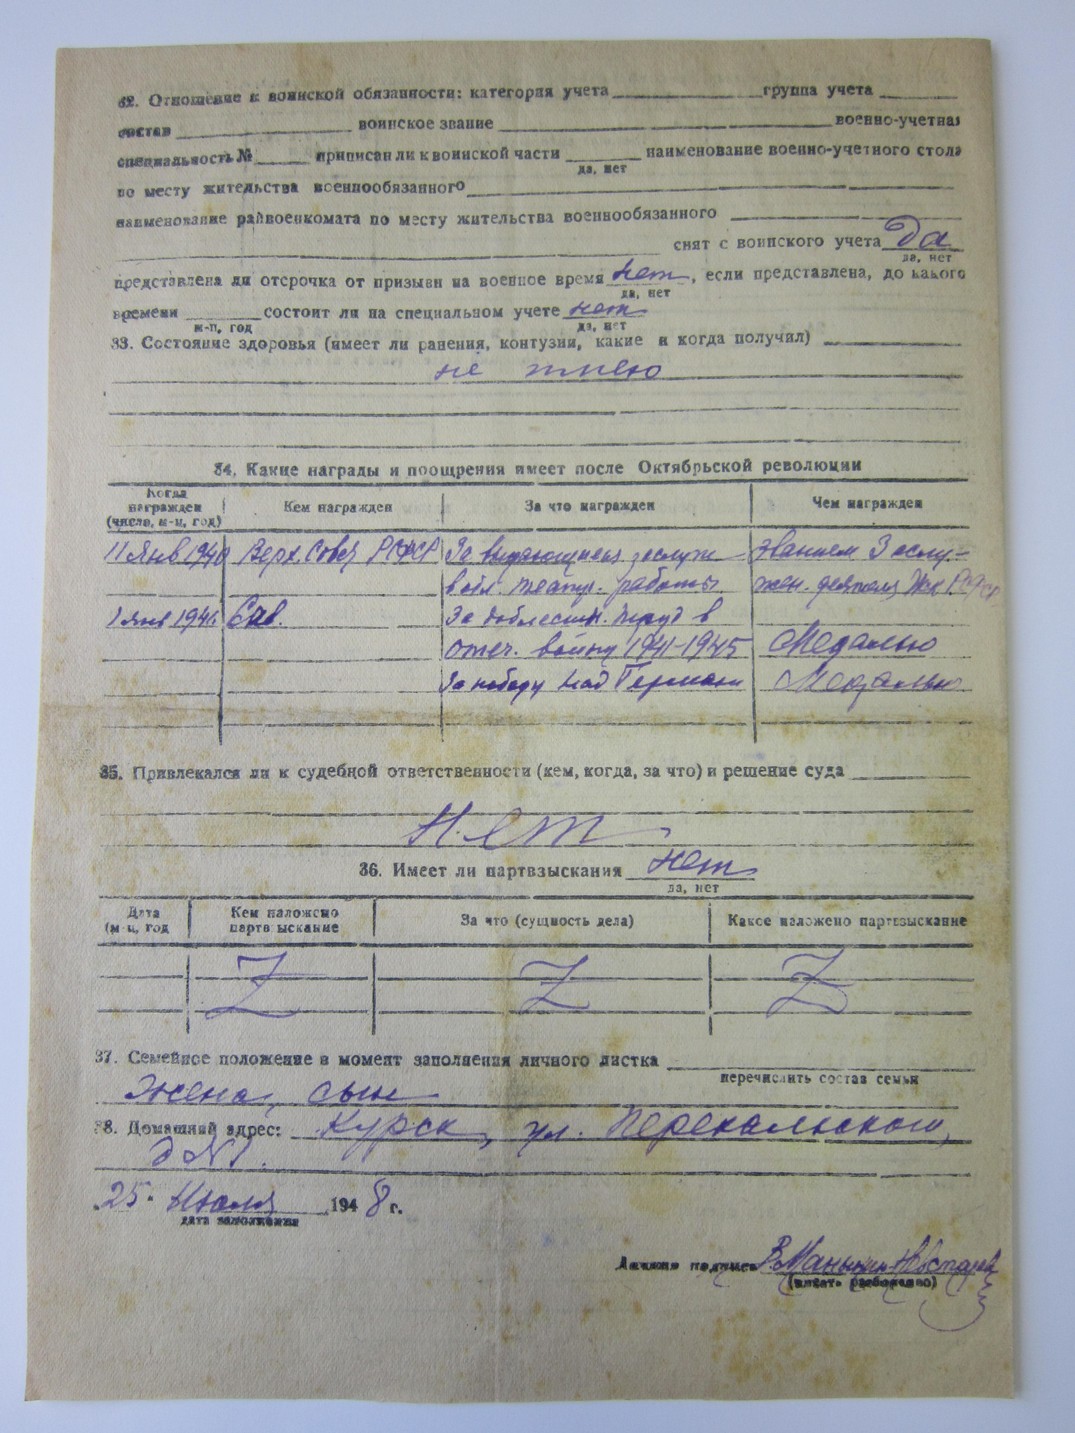 32. Отношение к воинской обязанности: категория учета группа учета
состав воинское звание военно-учетная
специальность № приписан ли к воинской части наименование военно-учетного стола
да, нет
по месту жительства военнообязанного
наименование райвоенкомата по месту жительства военнообязанного
снят с воинского учета да
да, нет
представлена ли отсрочка от призыва на военное время нет, если представлена, до какого
да, нет
времени состоит ли на специальном учете нет
м-ц, год да, нет
33. Состояние здоровья (имеет ли ранения, контузии, какие и когда получил)
не имею
34. Какие награды и поощрения имеет после Октябрьской революции
Когда награжден (число, м-ц, год) Кем награжден За что награжден Чем награжден
11 Янв 1940 Верх. Совет РСФСР За выдающиеся заслуги Званием Заслу-
в обл. театр. работы жен. деятеля Иск РСФСР
1 янв 194 За доблестн. труд в
отеч. войну 1941-1945 Медалью
За победу над Германи Медалью
35. Привлекался ли к судебной ответственности (кем, когда, за что) и решение суда
Нет
36. Имеет ли партвзыскания нет
да, нет
Дата (м-ц, год Кем наложено партв ыскание За что (сущность дела) Какое наложено партвзыскание
Z Z Z
37. Семейное положение в момент заполнения личного листка
перечислить состав семьи
Жена, сын
38. Домашний адрес: Курск, ул. Перекальского,
д №1.
25. Июля 1948 г.
дата заполнения
Личная подпись В. Манькин-Невструев
(писать разборчиво)